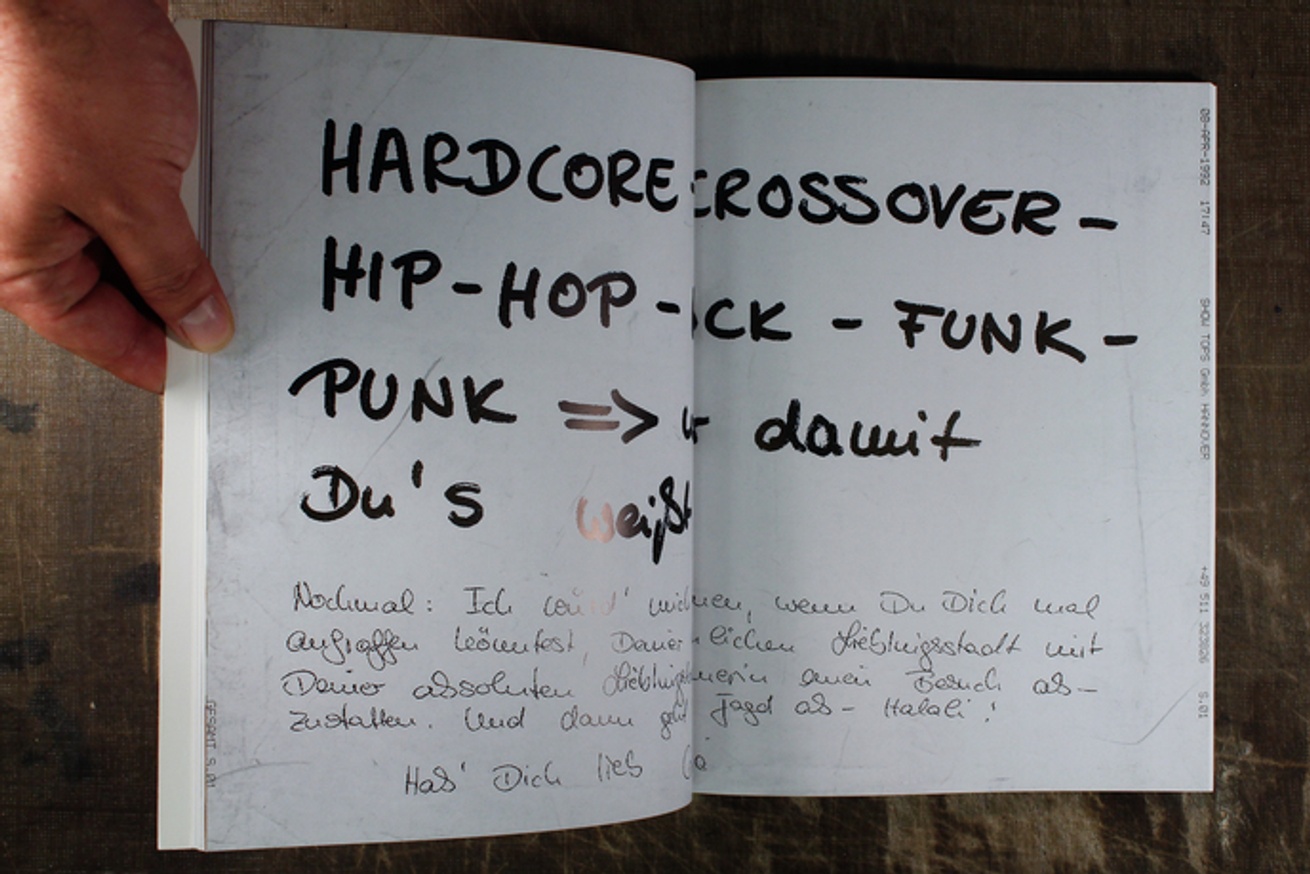 HARDCORE CROSSOVER -
HIP-HOP - CK - FUNK -
PUNK => damit
Du's weißt
Nochmal: Ich würd' wenn Du Dich mal
aufraffen könntest, Deiner Lieblingsstadt mit
Deiner absoluten einen Besuch ab-
zustatten. Und dann geht Jagd ab - Halali!
Hab' Dich lieb
08-APR-1992 17:47 SHOW TOPS GmbH HANNOVER +49 511 323026 S.01
GESAMT S.01